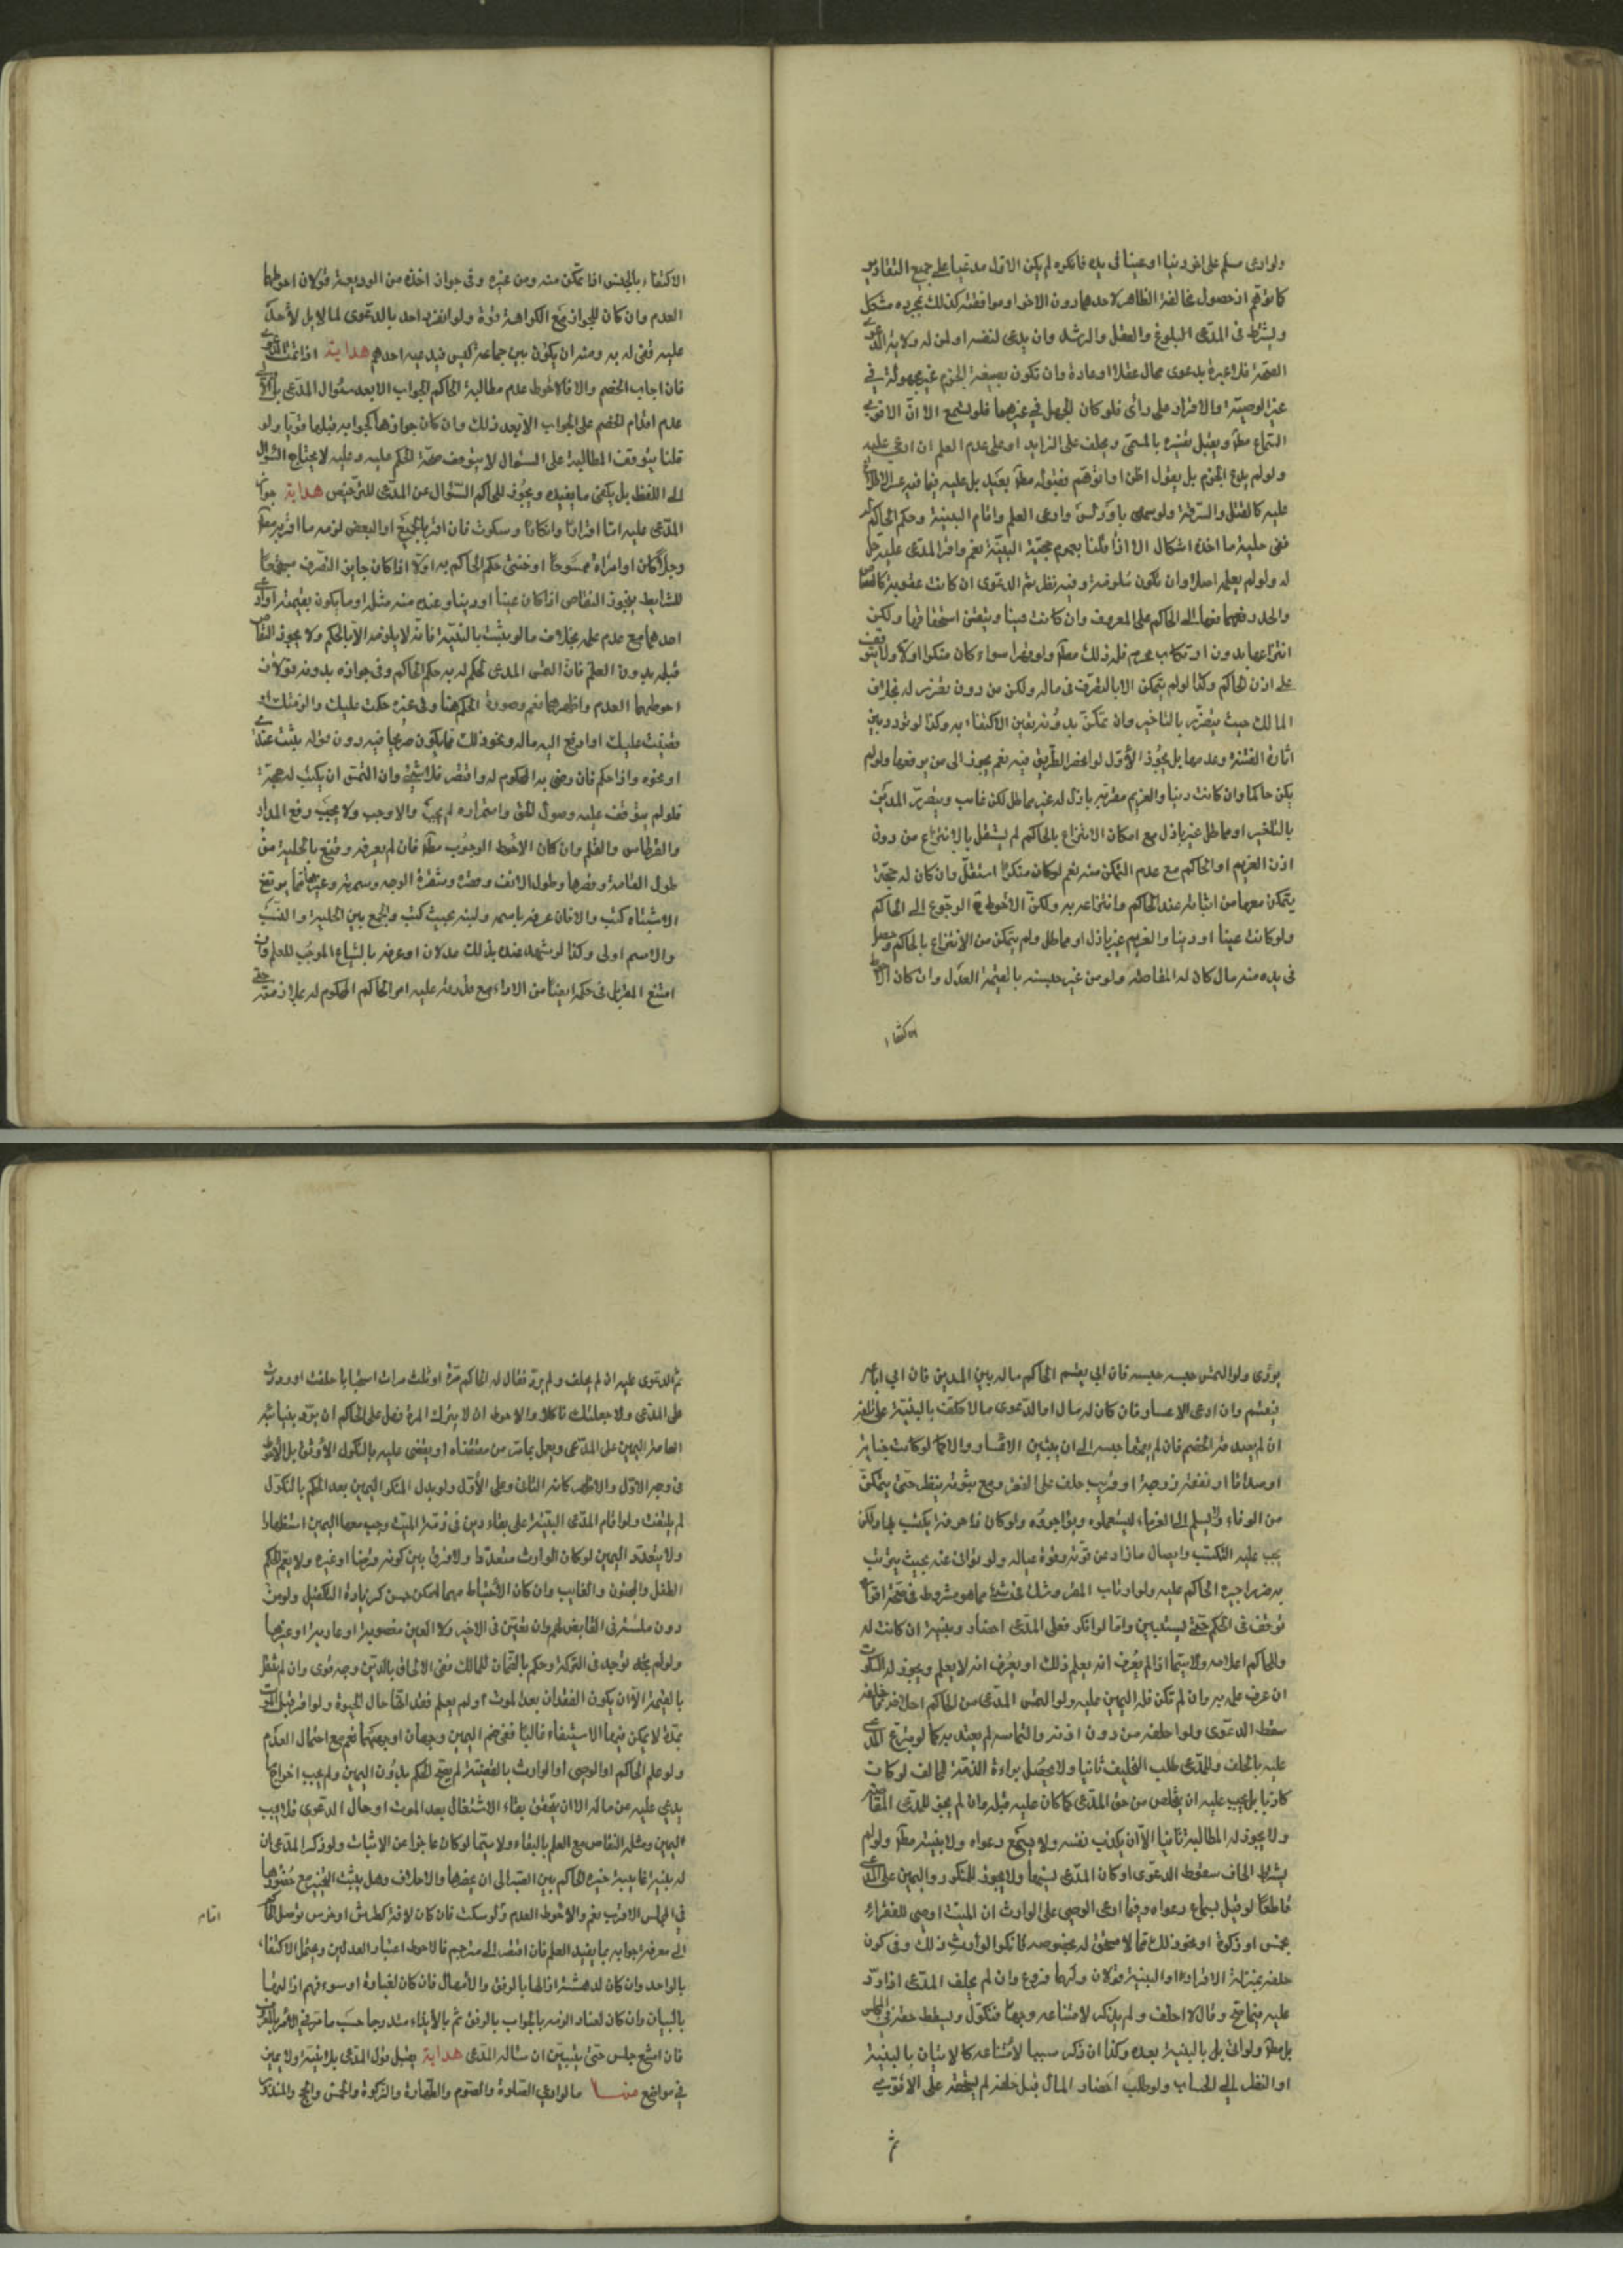 ولو ادعى مسلم على اخر دينا او عينا في يده فانكره لم يكن الاول مدعيا على جميع التقادير
كما توهم اذ حصول مخالفة الظاهر لاحدهما دون الاخر او موافقته كذلك بمجرده مشكل
ويشترط في المدعى البلوغ والعقل والرشد وان يدعى لنفسه او لمن له ولاية الدعوى
الصحة فلا عبرة بدعوى محال عقلا او عادة وان تكون بصيغة الجزم غير مجهولة في
غير الوصية والاقرار على راى فلو كان الجهل في غيرهما فلو لم يسمع الا ان الاقوى
السماع مطلقا ويقبل تفسيره بالمسمى ويحلف على الزايد او على عدم العلم ان ادعى عليه
ولو لم يدع الجزم بل يقول اظن او اتوهم فقبوله مطلقا بعيد بل عليه فيما فيه عسر الاطلاع
عليه كالقتل والسرقة ولو سمعت وادعى العلم واقام البينة وحكم الحاكم له
ففي حلية ما اخذه اشكال الا اذا قلنا بعموم حجية البينة نعم واقر المدعى عليه حل
له ولو لم يعلم اصلا وان تكون ملزمة وفيه نظر ثم الدعوى ان كانت عقوبة كالقصاص
والحد رفعهما الى الحاكم على المعروف وان كانت عينا وتيقن استحقاقها ولكن
انتزاعها بدون ارتكاب محرم فله ذلك مطلقا ولو قهرا سواء كان منكرا او لا ولا يتوقف
على اذن الحاكم وكذا لو لم يتمكن الا بالتصرف في ماله ولكن من دون تضرر له بخلاف
المالك حيث يتضرر بالتاخير وان تمكن بدونه تعين الاكتفاء به وكذا لو تردد بين
اثارة الفتنة وعدمها بل يجوز الاول لو انحصر الطريق فيه نعم يجوز الى من يوقعها ولو لم
يكن حاكما وان كانت دينا والغريم مقر به باذل له غير مماطل لكن غايب ويتضرر المدعى
بالتاخير او مماطل غير باذل مع امكان الانتزاع بالحاكم لم يستقل بالانتزاع من دون
اذن الغريم او الحاكم مع عدم التمكن منه نعم لو كان منكرا استقل وان كان له حجة
يتمكن معها من اثباته عند الحاكم وانتزاعه به ولكن الاحوط ح الرجوع الى الحاكم
ولو كانت عينا او دينا والغريم غير باذل او مماطل ولم يتمكن من الانتزاع بالحاكم وحصل
في يده منه مال كان له المقاصة ولو من غير جنسه بالقيمة العدل وان كان الاحوط
الاكتفاء
الاكتفاء بالجنس اذا تمكن منه ومن غيره وفي جواز اخذه من الوديعة قولان احوطهما
العدم وان كان للجواز مع الكراهة قوة ولو انفرد احد بالدعوى لما لا يد لأحد
عليه قضى له به ومنه ان يكون بين جماعة كيس فيدعيه احدهم هداية اذا تمت الدعوى
فان اجاب الخصم والا فالاحوط عدم مطالبة الحاكم الجواب الا بعد سؤال المدعى
عدم اقدام الخصم على الجواب الا بعد ذلك وان كان جوازها كجوابه قبلها قويا ولو
قلنا بتوقف المطالبة على السؤال لا يتوقف صحة الحكم عليه وعليه لا يحتاج السؤال
الى اللفظ بل يكفي ما يفيده ويجوز للحاكم السؤال عن المدعى للترخيص هداية جواب
المدعى عليه اما اقرار او انكار او سكوت فان اقر بالجميع او البعض لزمه ما اقر به مطلقا
رجلا كان او امراة ممسوحا او خنثى حكم الحاكم به او لا اذا كان جايز التصرف مجتمعا
للشرايط يجوز التقاص اذا كان عينا او دينا وعنده منه مثله او ما يكون بقيمته
احدهما مع عدم علمه بخلاف ما لو يثبت بالبينة فانه لا يلزمه الا بالحكم ولا يجوز التقاص
قبله بدون العلم فان التمس المدعى لحكم له به حكم الحاكم وفي جوازه بدونه قولان
احوطهما العدم واظهرهما نعم وصورة الحكم هنا وفي غيره حكمت عليك والزمتك او
قضيت عليك او ادفع اليه ماله ونحو ذلك مما يكون صريحا فيه دون قوله يثبت عندي
او نحوه واذا حكم فان رضى به المحكوم له واقتصر فلا شئ وان التمس ان يكتب له حجة
فلو لم يتوقف عليه وصول الحق واستمراره لم يجب والا وجب ولا يجب دفع المداد
والقرطاس والقلم وان كان الاحوط الوجوب مطلقا فان لم يعرفه وقنع بالحلية من
طول القامة وقصرها وطول الانف وقصره وشقرة الوجه وسمرته وغيرهما مما يرتفع
الاشتباه كتب والا فان عرفه باسمه ونسبه بحيث كتب والجمع بين الحلية والنسب
والاسم اولى وكذا لو شهد عنده بذلك عدلان او عرفه بالشياع الموجب للعلم فان
امتنع المقر في حكم ايضا من الاداء مع قدرته عليه امر الحاكم المحكوم له بملازمته حتى
يؤدى ولو التمس حبسه حبسه فان ابي يقسم الحاكم ماله بين المدين فان ابي
فيقسم وان ادعى الاعسار فان كان له مال او الدعوى مالا كلف بالبينة على تلفه
ان لم يصدقه الخصم فان لم يقمها حبسه الى ان يتبين الاعسار والا كما لو كانت جناية
او صداقا او نفقة زوجة او قريب حلف على الفقر ومع ثبوته ينظر حتى يتمكن
من الوفاء ولا يسلم الى الغرماء ليستعملوه ويؤاجروه ولو كان ذا حرفة يكتسب بها ولكن
يجب عليه التكسب وايصال ما زاد عن قوته وقوة عياله ولو توانى عنه بحيث يترتب
به ضررا جبره الحاكم عليه ولو ارتاب المقر وشك في شئ مما هو مشروط في صحة اقراره
توقف في الحكم حتى يستبين واما لو انكر فعلى المدعى احضار وبينة ان كانت له
وللحاكم اعلامه ولا سيما اذا لم يعرف انه يعلم ذلك او يعرف انه لا يعلم ويجوز له السكوت
ان عرف علمه به وان لم تكن فله اليمين عليه ولو التمس المدعى من الحاكم احلافه فاحلفه
سقط الدعوى ولو احلفه من دون اذنه والتماسه لم يعتد به كما لو تبرع المدعى
عليه بالحلف وللمدعى طلب التحليف ثانيا ولا يحصل براءة الذمة للحالف لو كان
كاذبا بل يجب عليه ان يتخلص من حق المدعى كما كان عليه قبله وان لم يجز للمدعى المقاصة
ولا يجوز له المطالبة ثانيا الا ان يكذب نفسه ولا يسمع دعواه ولا بينته مطلقا ولو لم
يشترط الحالف سقوط الدعوى او كان المدعى يتيما ولا يجوز للمنكر رد اليمين على المدعى
قاطعا لو قبل بسماع دعواه وفيما ادعى الوصى على الوارث ان الميت اوصى للفقراء
بخمس او زكوة او نحو ذلك مما لا مستحق له بخصوصه فانكر الوارث ذلك وفي كون
حلفه بمنزلة الاقرار او البينة قولان ولهما فروع وان لم يحلف المدعى اذا رد
عليه فيما صح وقال لا احلف ولم يذكر لامتناعه وجها فنكول ويسقط حقه في المجلس
بل مطلقا ولو اتى بالبينة بعده وكذا ان ذكر سببا لامتناعه كالاتيان بالبينة
او النظر الى الحساب ولو طلب احضار المال قبل حلفه لم يحضر على الاقوى
ثم
ثم الدعوى عليه ان لم يحلف ولم يرد فقال له الحاكم مرة او ثلث مرات استحبابا حلفت او رددت
على المدعى والا جعلتك ناكلا والاحوط ان لا يترك المرة فعلى الحاكم ان يرد
اليمين على المدعى ويعمل بما مر من مقتضاه او يقضى عليه بالنكول الاوثق بل الاحوط
في وجه الاول والاظهر كما في الثاني وعلى الاول ولو بذل المنكر اليمين بعد الحكم بالنكول
لم يلتفت ولو اقام المدعى البينة على بقاء دين في ذمة الميت وجب معها اليمين استظهارا
ولا يتعدد اليمين لو كان الوارث متعددا ولا فرق بين كونه وغيره ولا يتم الحكم
الطفل والمجنون والغايب وان كان الاحتياط مهما امكن حسن كزيادة التكفيل
ولو علم الحاكم او الوصى او الوارث بالقضية لم يتم الحكم بدون اليمين ولم يجب اخراج ما
يدعى عليه من ماله الا ان يتحقق بقاء الاشتغال بعد الموت او حال الدعوى فلا يجب
اليمين ومثله التقاص مع العلم بالبقاء ولا سيما لو كان عاجزا عن الاثبات ولو ذكر المدعى ان
له بينة غايبة خيره الحاكم بين الصبر الى ان يحضرها والاحلاف وهل يثبت التخيير مع حضورها
في المجلس الاقرب نعم والاحوط العدم ولو سكت فان كان لافة كطرش او خرس توصل الحاكم
اقام
الى معرفة جوابه بما يفيد العلم فان افتقر الى مترجم فالاحوط اعتبار العدلين ويحتمل الاكتفاء
بالواحد وان كان لدهشة ازالها بالرفق والامهال فان كان لغباوة او سوء فهم ازاله
بالبيان وان كان لعناد الزمه بالجواب بالرفق ثم بالايذاء متدرجا حسب ما مر في الامر بالمعروف
فان امتنع حبس حتى يتبين ان ساله المدعى هداية يقبل قول المدعى بلا بينة ولا يمين
في مواضع منها ما لو ادعى الصلوة والصوم والطهارة والزكوة والخمس والحج والنذر